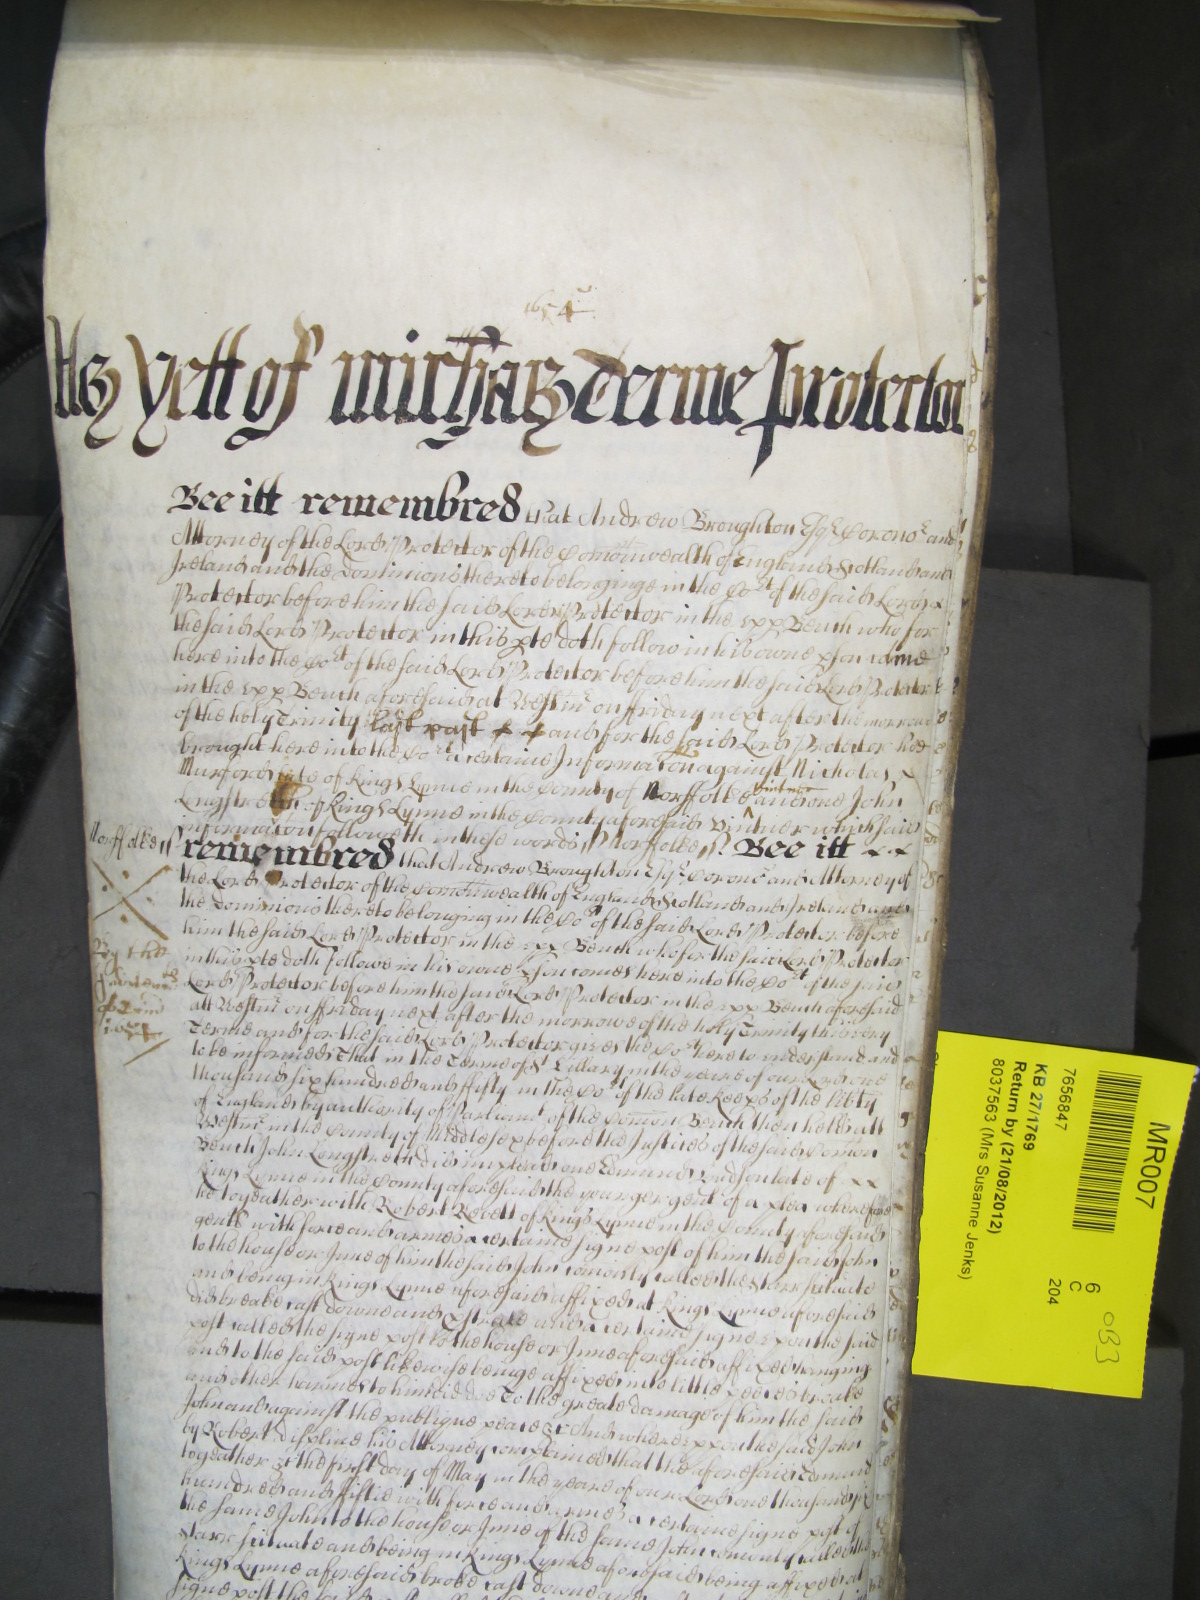 1654
yett of Michas Terme Protector
Bee itt remembred that Andrew Broughton Esqr Corono^r and
Attorney of the Lord Protector of the Comonwealth of England Scotland and
Ireland and the Dominions thereto belonginge in the Co^rt of the said Lord
Protector before him the said Lord Protector in the vpp Bench who for
the said Lord Protector in this pte doth follow in his owne pson came
here into the Co^rt of the said Lord Protector before him the said Lord Protector
in the vpp Bench aforesaid at Westm^r on ffriday next after the morrow
of the holy Trinity last past x x and for the said Lord Protector hee
brought here into the Co^rt a certaine Informacon against Nicholas
Murford late of Kings Lynne in the County of Norffolke vintner and one John
Longstreth of Kings Lynne in the County aforesaid Vintner which said
informacon followeth in these words // Norffolke // Bee itt x x
Norffolke //
remembred that Andrew Broughton Esqr Corono^r and Attorney of
the Lord Protector of the Comonwealth of England Scotland and Ireland and
the Dominions thereto belonging in the Co^rt of the said Lord Protector before
him the said Lord Protector in the vpp Bench who for the said Lord Protector
in this pte doth followe in his owne pson comes here into the Co^rt of the said
Lord Protector before him the said Lord Protector in the vpp Bench aforesaid
att Westm^r on ffriday next after the morrowe of the holy Trinity this very
Terme and for the said Lord Protector gives the Co^rt here to understand and
to be informed That in the Terme of St Hillary in the yeare of our Lord one
thousand six hundred and fifty in the Co^rt of the late Keeps of the libty
of England by authority of Parliamt of the Comon Bench then held att
Westm^r in the County of Middlesex before the Justices of the said Comon
Bench John Longstreth did impleade one Edmund late of x x
Kings Lynne in the County aforesaid the younger gent of a plea wherefore
he togeather with Robert Revett of Kings Lynne in the County aforesaid
gent with force and armes a certaine signe post of him the said John
to the house or Inne of him the said John comonly called the Starr scituate
and being in Kings Lynne aforesaid affixed at Kings Lynne aforesaid
did breake cast downe and and a certaine signe vpon the said
post called the signe post to the house or Inne aforesaid affixed hanging
and to the said post likewise beinge affixed into little peeces breake
and other harmes to him did doe To the greate damage of him the said
John and against the publique peace &c And where vpon the said John
by Robert his Attorney complained that the aforesaid Edmund
togeather &c the first day of May in the yeare of our Lord one thousand six
hundred and fiftie with force and armes a certaine signe post of
the same John to the house or Inne of the same John comonly called the
Starr scituate and being in Kings Lynne aforesaid being affixed at
Kings Lynne aforesaid broke cast downe and
signe post
MR007
7656847
6
C
204
KB 27/1769
Return by (21/08/2012)
8037563 (Mrs Susanne Jenks)